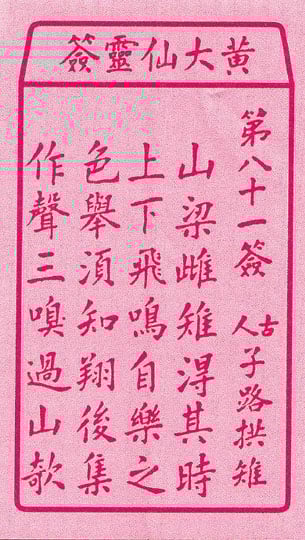 黄大仙靈簽
第八十一簽 古人 子路拱雉
山梁雌雉淂其時
上下飛鳴自樂之
色舉須知翔後集
作聲三嗅過山欹